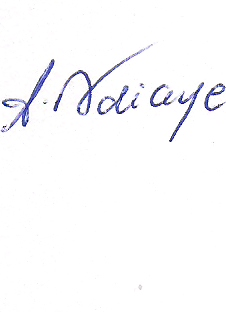 A. Ndiaye